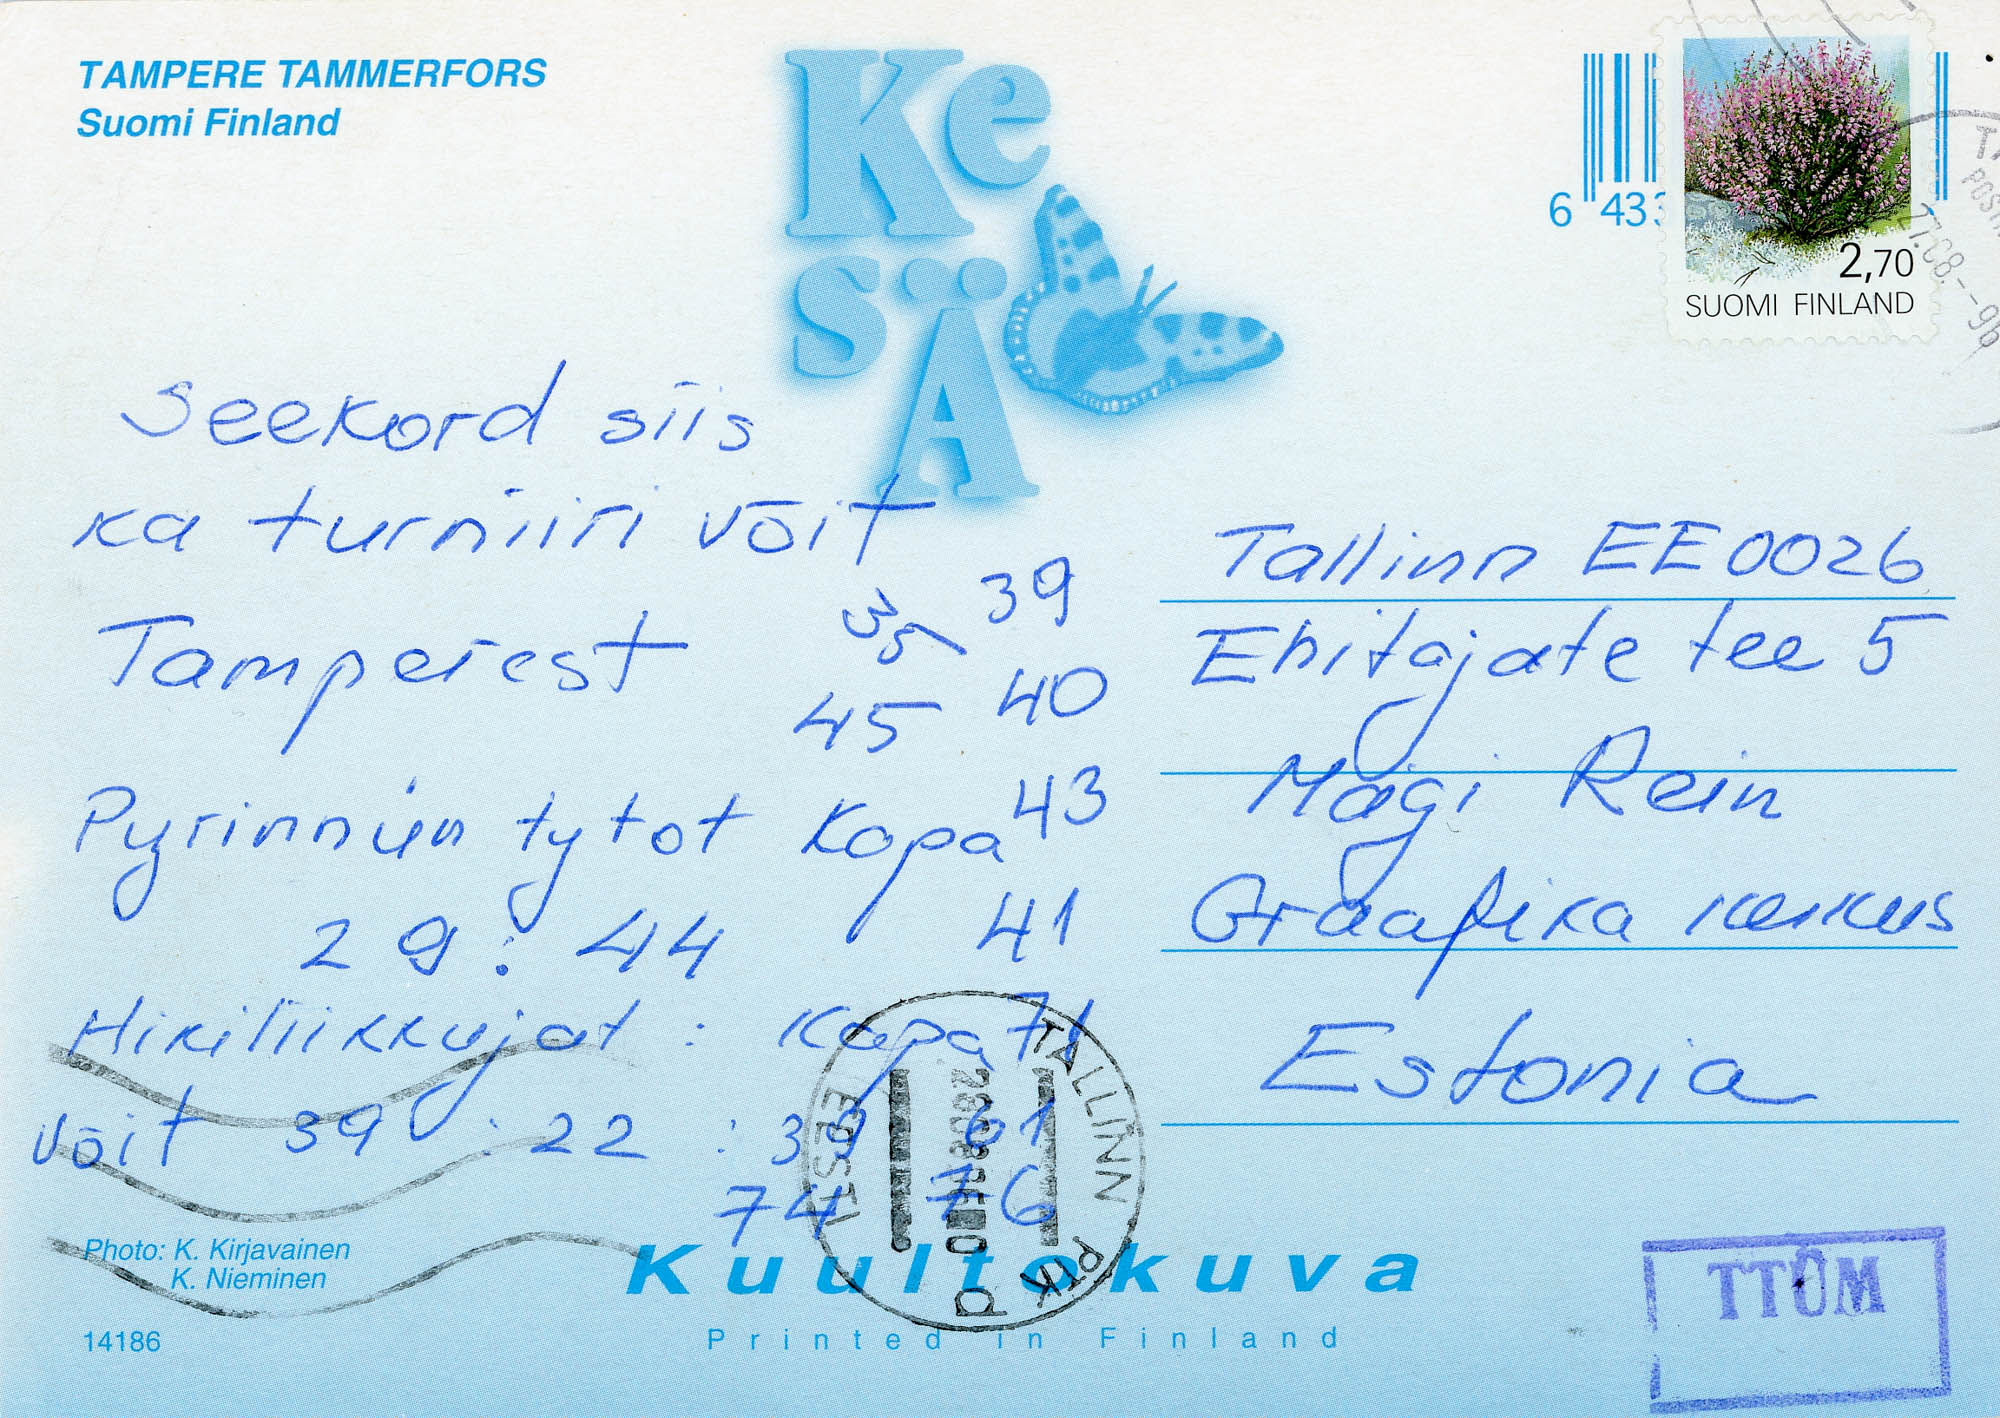 TAMPERE TAMMERFORS
Suomi Finland
KeSÄ
6 433
2,70
SUOMI FINLAND
Seekord siis
ka turniiri võit
Tamperest
35 39
45 40
Pyrinniin tytot Kopa 43
29 : 44 41
Hikiliikkujat : Kopa 71
võit 39 : 22 : 39 61
74 76
Tallinn EE0026
Ehitajate tee 5
Mägi Rein
Graafika keskus
Estonia
TALLINN PKK d
EESTI
Photo: K. Kirjavainen
K. Nieminen
Kuultokuva
Printed in Finland
14186
TTÜM